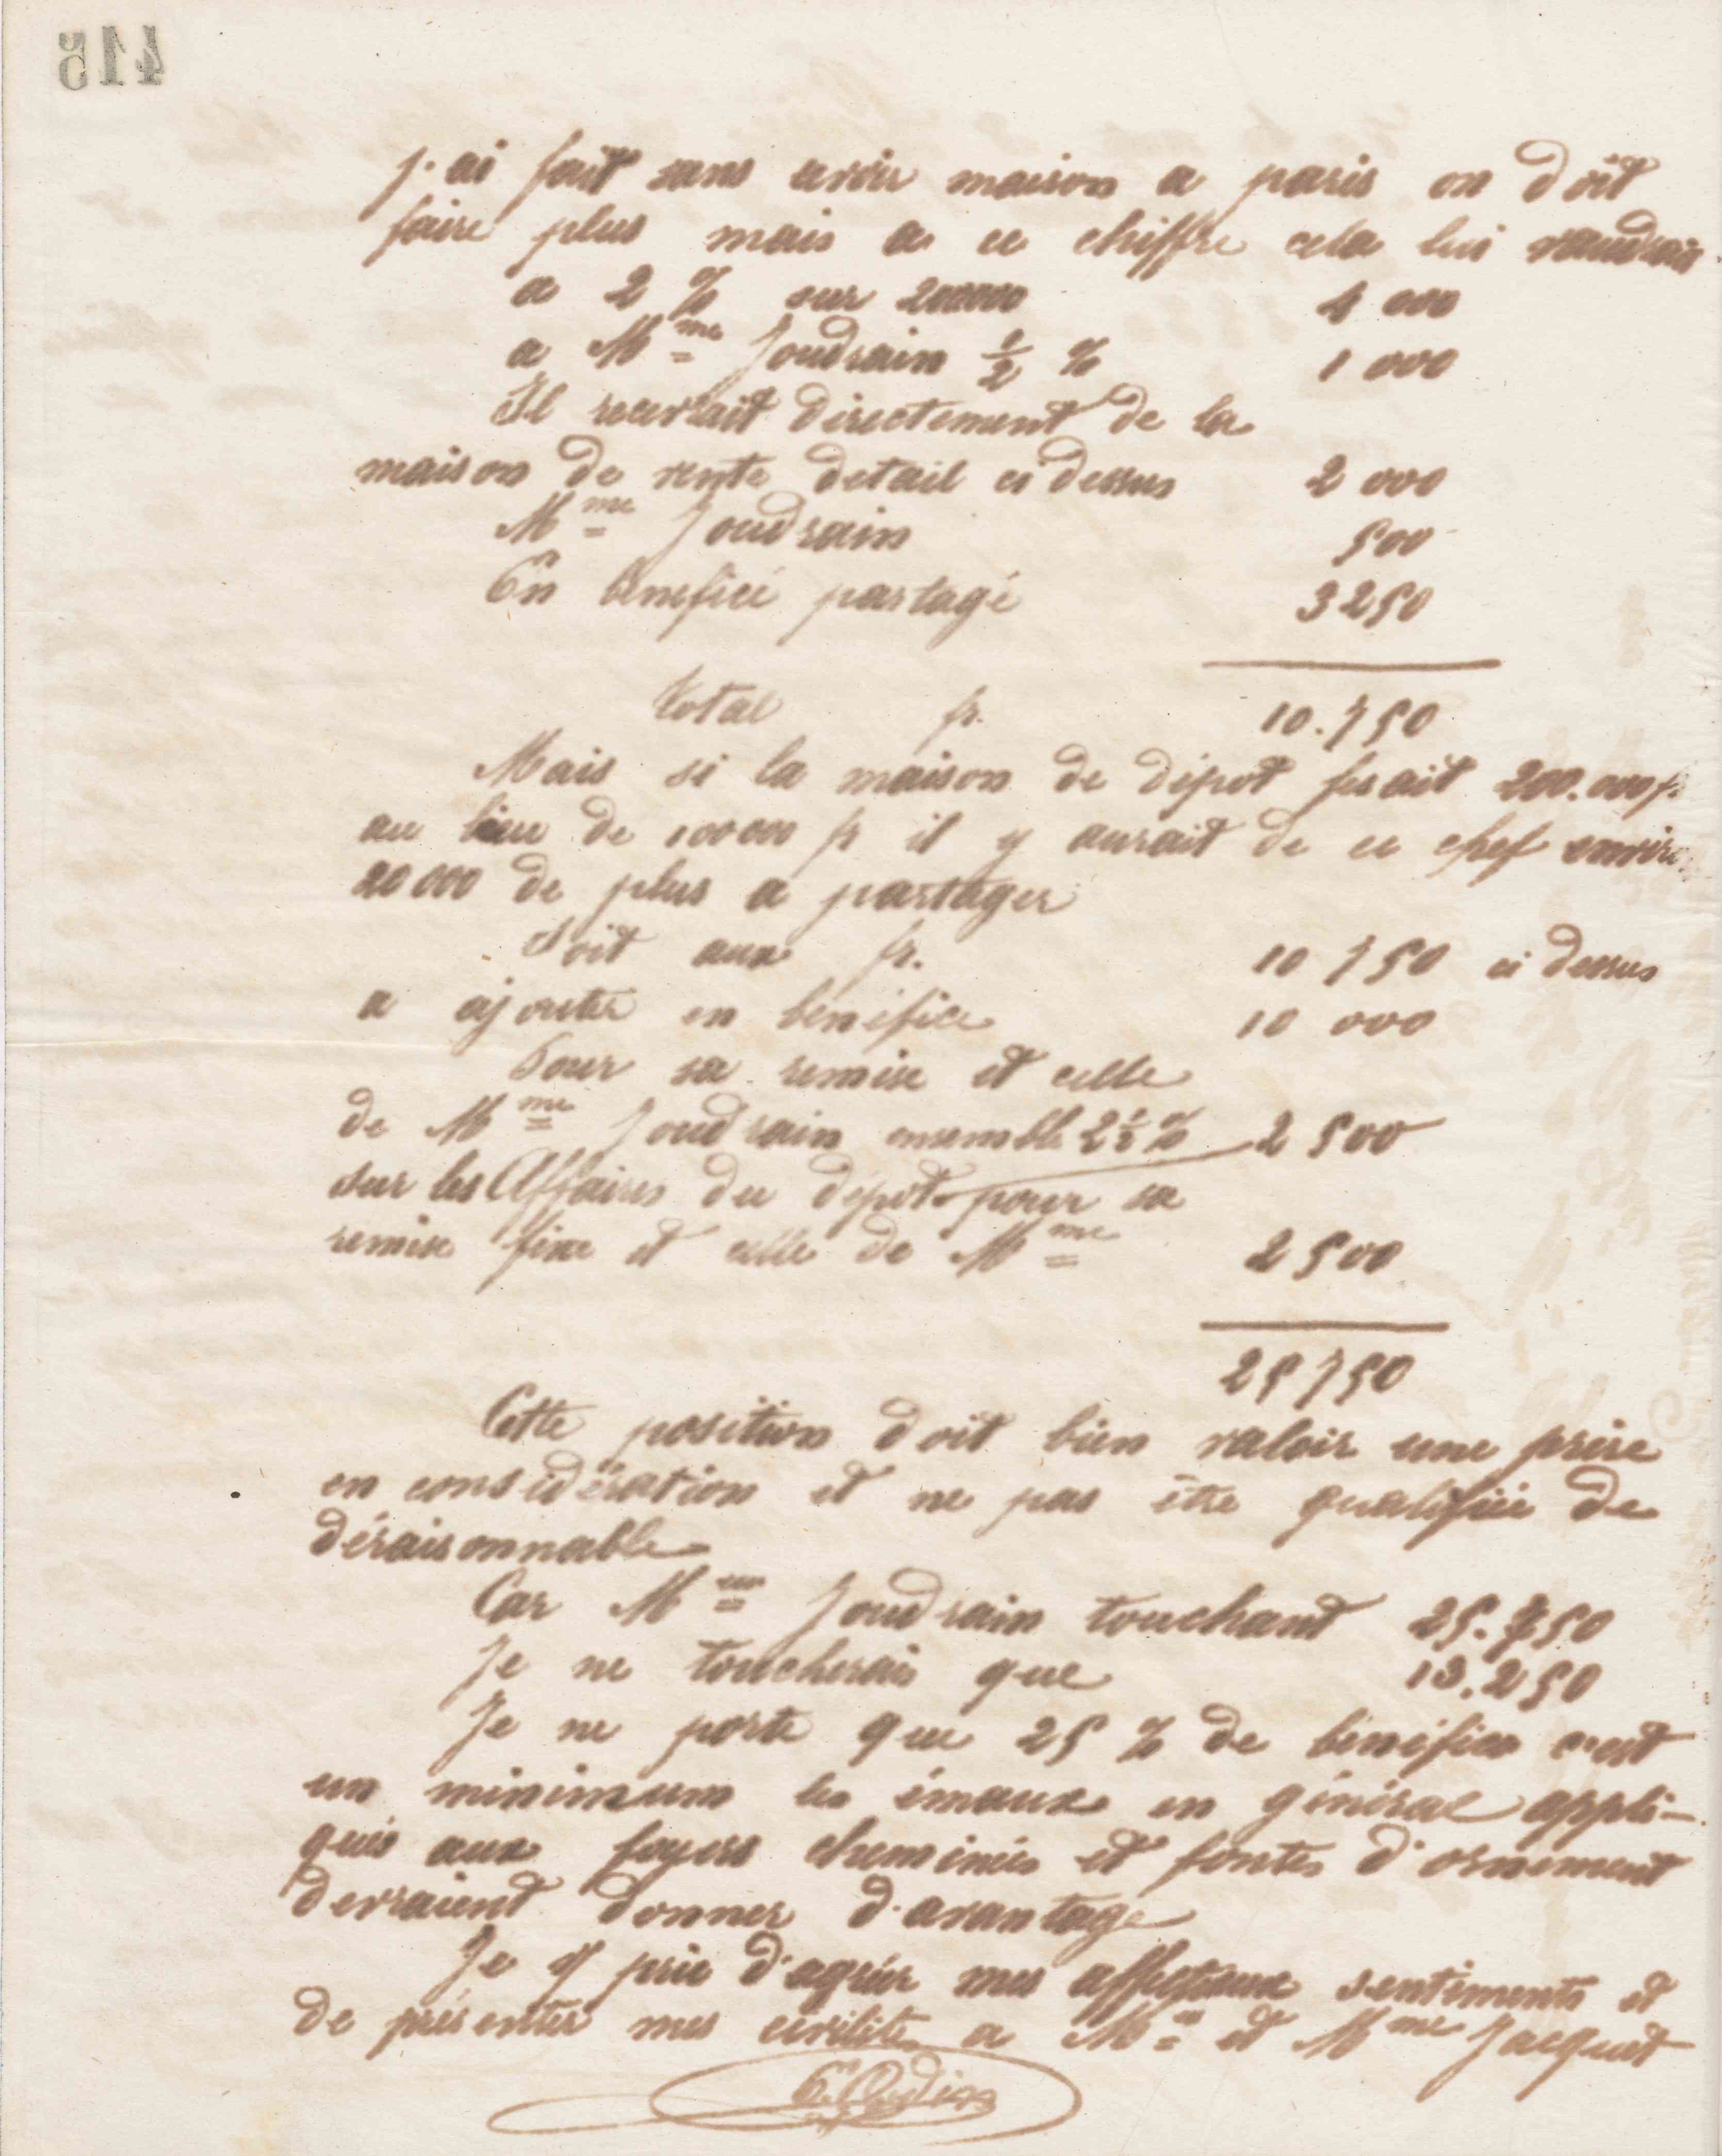 415
j'ai fait sans avoir maison a paris on doit
faire plus mais a ce chiffre cela lui vaudrait
a 2 % sur 200000 4 000
a Mme Joudrain 1/2 % 1 000
Il recevrait directement de la
maison de vente detail ci dessus 2 000
Mme Joudrain 500
En bénéfice partagé 3250
Total fr. 10.750
Mais si la maison de dépot fesait 200.000 f
au lieu de 100000 fr il y aurait de ce chef environ
20 000 de plus a partager
Soit aux fr. 10 750 ci dessus
a ajouter en bénéfice 10 000
Pour sa remise et celle
de Mme Joudrain ensemble 2 1/2 % 2 500
sur les Affaires du dépot pour sa
remise fixe et celle de Mme 2500
25750
Cette position doit bien valoir une prise
en considération et ne pas être qualifiée de
déraisonnable
Car Meur Joudrain touchant 25.750
Je ne toucherais que 13.250
Je ne porte que 25 % de bénéfice c'est
un minimum les émaux en général appli-
qués aux foyers cheminées et fontes d'ornement
devraient donner d'avantage
Je te prie d'agréer mes affectueux sentiments et
de présenter mes civilités a Mr et Mme Jacquet